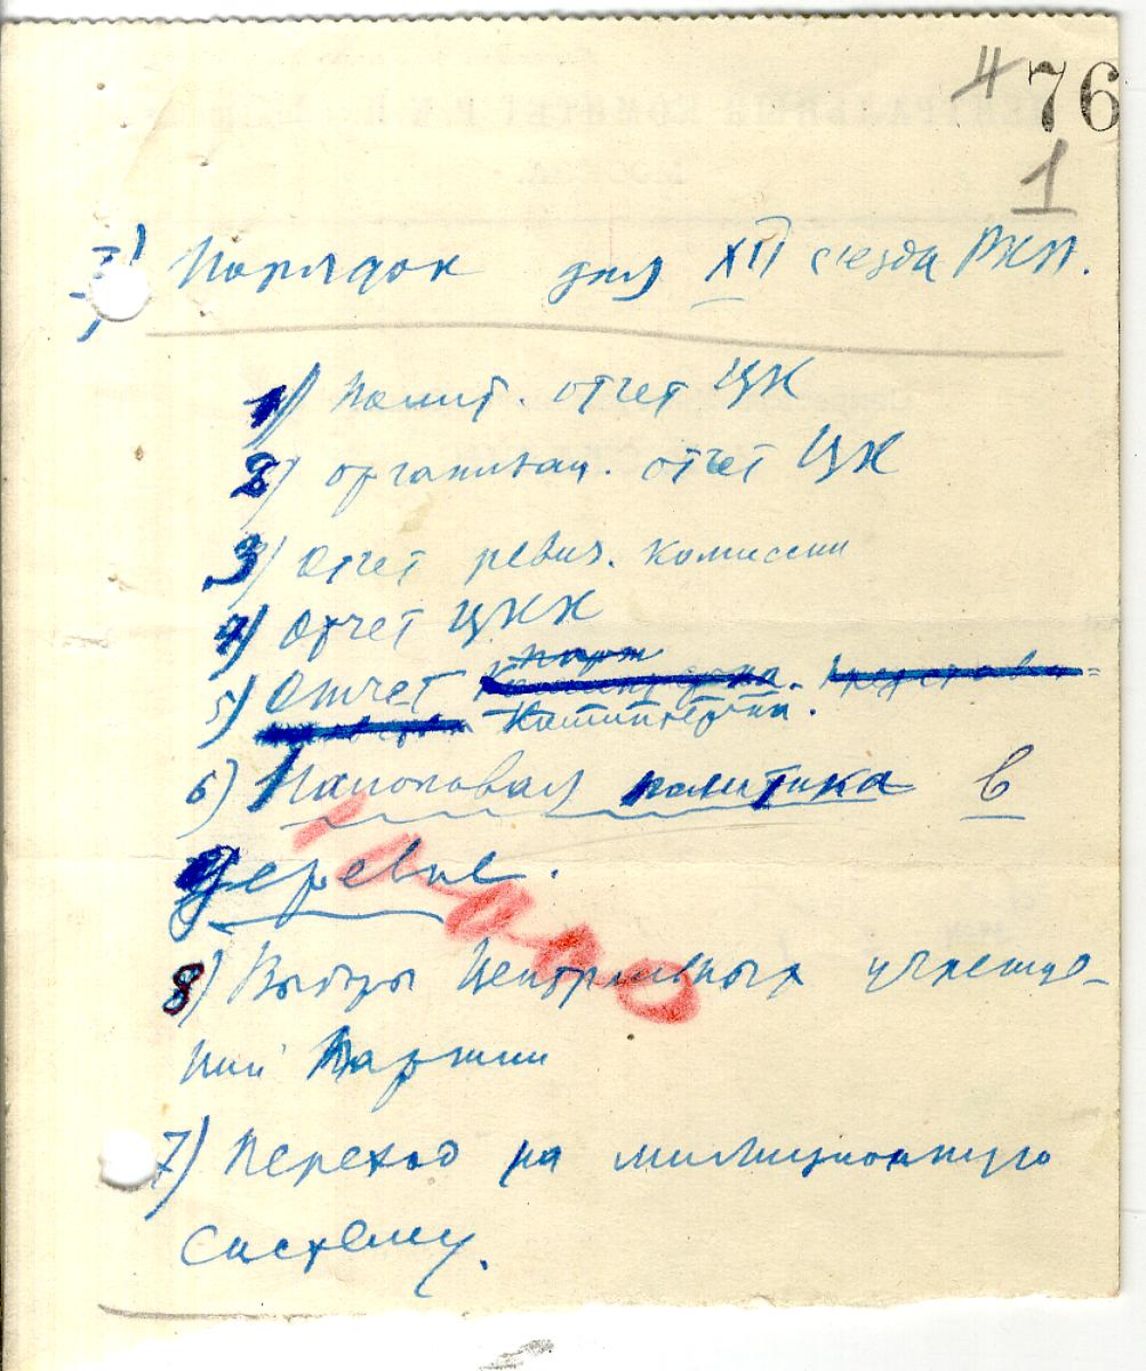 4 76
1
Порядок дня XII съезда РКП.
1) Полит. отчет ЦК
2) организац. отчет ЦК
3) Отчет ревиз. комиссии
4) Отчет ЦКК
5) Отчет
Коминтерна.
6) Налоговая политика в
деревне.
8) Выборы Центральных учрежде-
ний Партии
7) Переход на милиционную
систему.